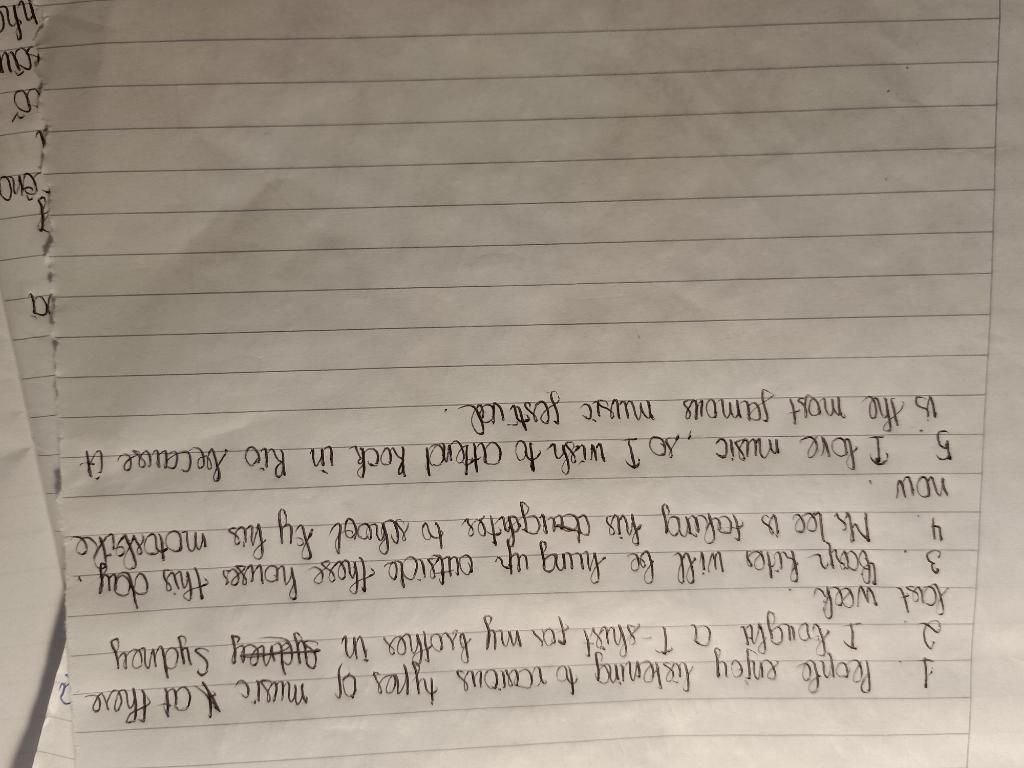 1. People enjoy listening to various types of music at there
2. I bought a T-shirt for my brother in Sydney
last week.
3. Carp kites will be hung up outside these houses this day.
4. Mr Lee is taking his daughter to school by his motorbike
now.
5. I love music, so I wish to attend Rock in Rio because it
is the most famous music festival.